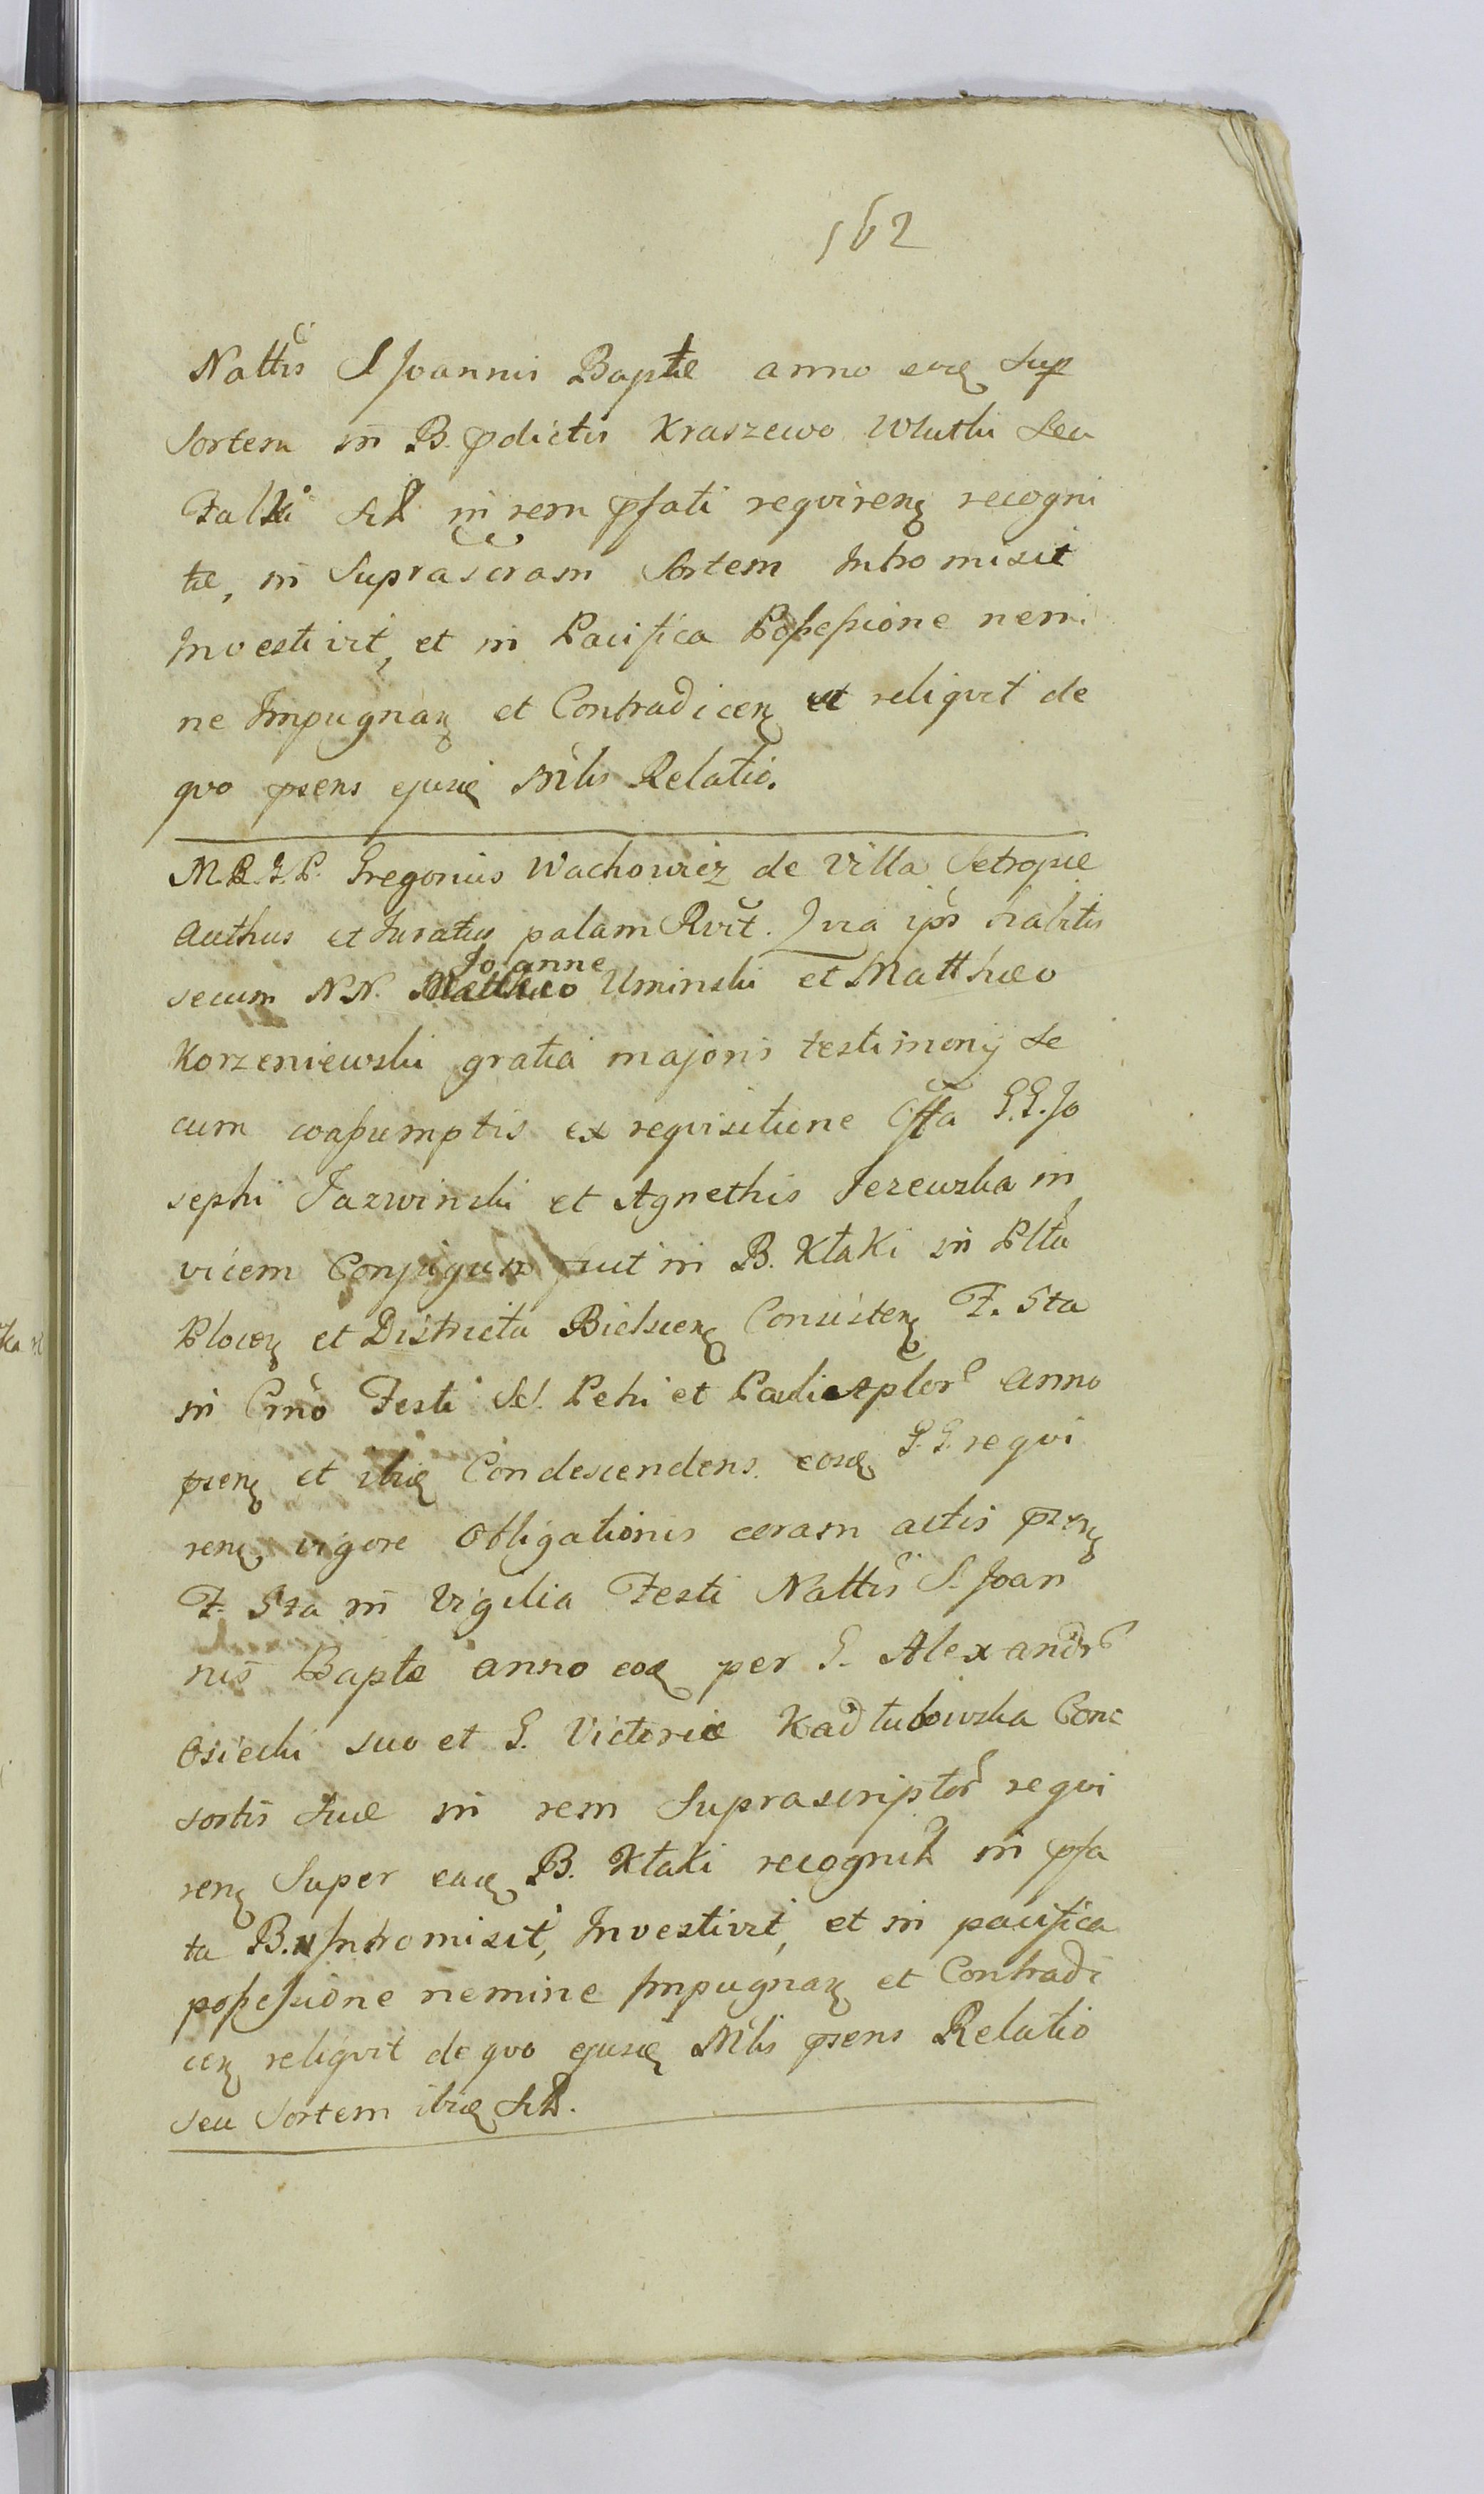 562
Nattis S Joannis Baptæ anno eoꝗ Sup
Sortem in B. pdictis Kraszewo Wlutki Seu
Falki in rem pfati reqviren recogni
tæ, in Suprascram Sortem Intromisit
Investivit, et in Pacifica Possessione nemi
ne Impugnan et Contradicen reliqvit de
qvo psens ejusꝗ Mlis Relatio.
M.R.J.P. Gregorius Wachowicz de Villa Setropie
Authus et Juratus palam Rvit. Qvia ips habitis
secum N.N. Joanne Uminski et Matthæo
Korzeniewski gratia majoris testimonij se
cum coassumptis ex reqvisitione Offa G.G. Jo
sephi Jazwinski et Agnethis Jezewska in
vicem Conjugum fuit in B. Kłaki in Pltu
Plocen et Districtu Bielscen Consisten F. 5ta
in Crno Festi SS. Petri et Pauli Aplor anno
psen et ibiꝗ Condescendens eorꝗ G.G. reqvi
ren vigore Obligationis coram actis psen
F. 5ta in Vigilia Festi Nattis S. Joan
nis Baptæ anno eoꝗ per G. Alexandr
Osiecki suo et G. Victoriæ Kadłubowska Con
sortis suæ in rem Suprascriptor reqvi
ren Super eaꝗ B. Kłaki recognit in pfa
ta B. Intromisit, Investivit, et in pacifica
possessione nemine Impugnan et Contradi
cen reliqvit de qvo ejusꝗ Mlis psens Relatio
seu Sortem ibiꝗ